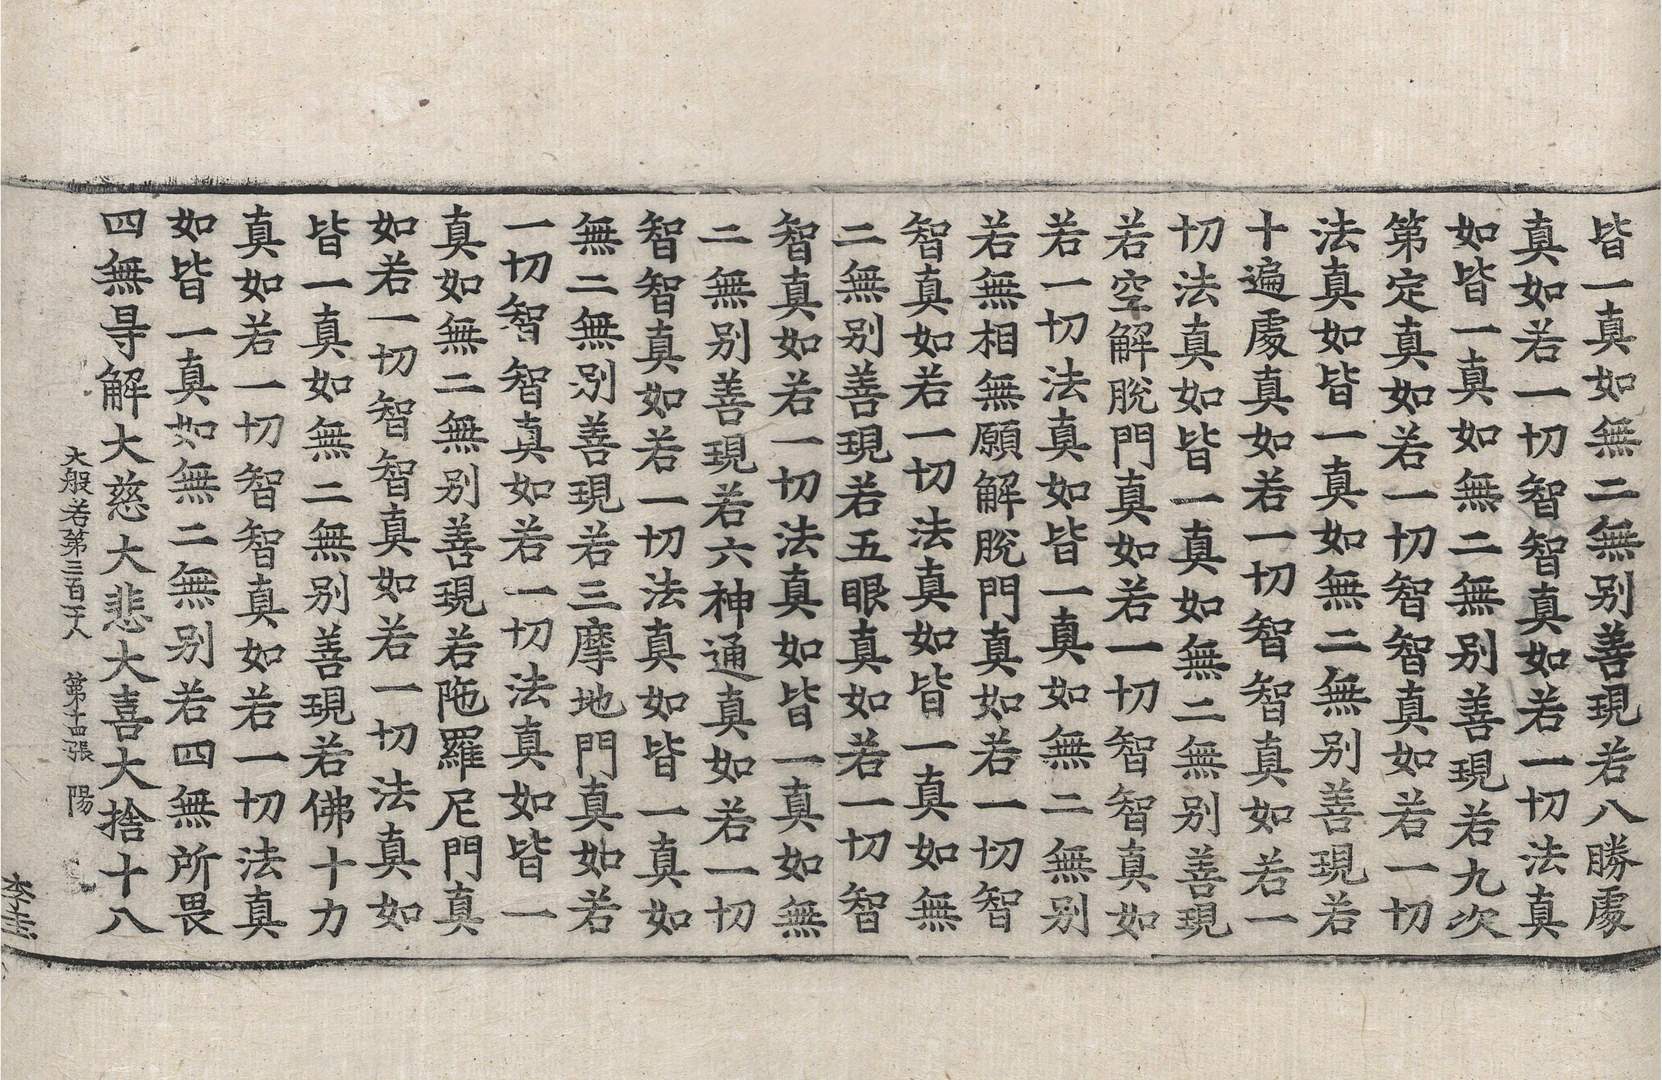 皆一真如無二無别善現若八勝處
真如若一切智智真如若一切法真
如皆一真如無二無别善現若九次
第定真如若一切智智真如若一切
法真如皆一真如無二無别善現若
十遍處真如若一切智智真如若一
切法真如皆一真如無二無别善現
若空解脫門真如若一切智智真如
若一切法真如皆一真如無二無别
若無相無願解脫門真如若一切智
智真如若一切法真如皆一真如無
二無别善現若五眼真如若一切智
智真如若一切法真如皆一真如無
二無别善現若六神通真如若一切
智智真如若一切法真如皆一真如
無二無别善現若三摩地門真如若
一切智智真如若一切法真如皆一
真如無二無别善現若陁羅尼門真
如若一切智智真如若一切法真如
皆一真如無二無别善現若佛十力
真如若一切智智真如若一切法真
如皆一真如無二無别若四無所畏
四無㝵解大慈大悲大喜大捨十八
大般若第三百一十八　第十四張　陽
李圭